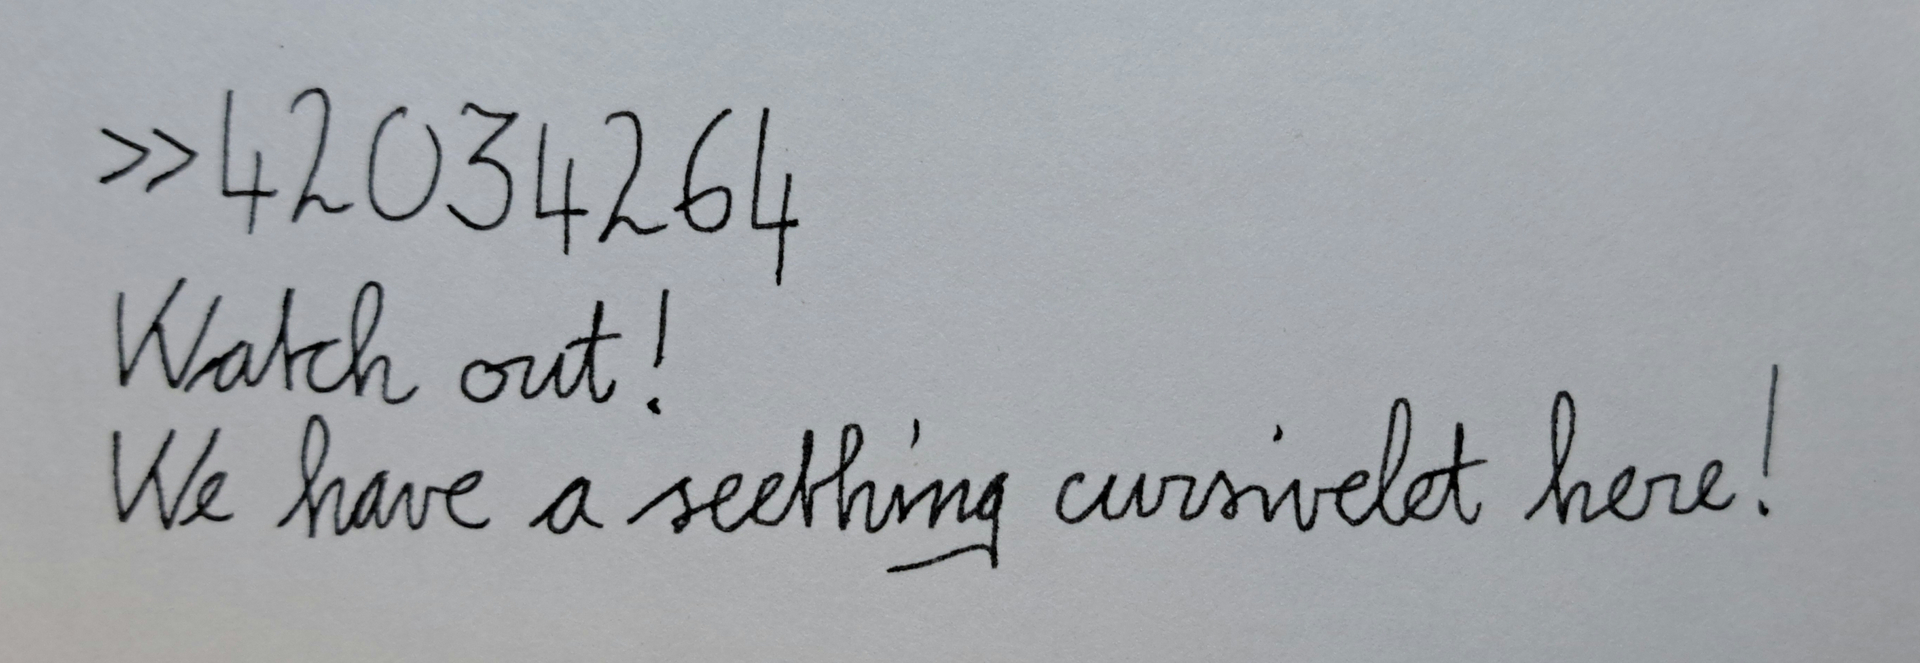 >>42034264
Watch out!
We have a seething cursivelet here!